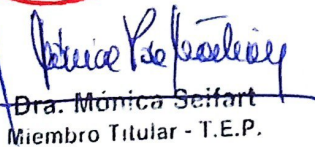 Dra. Mónica Seifart
Miembro Titular - T.E.P.